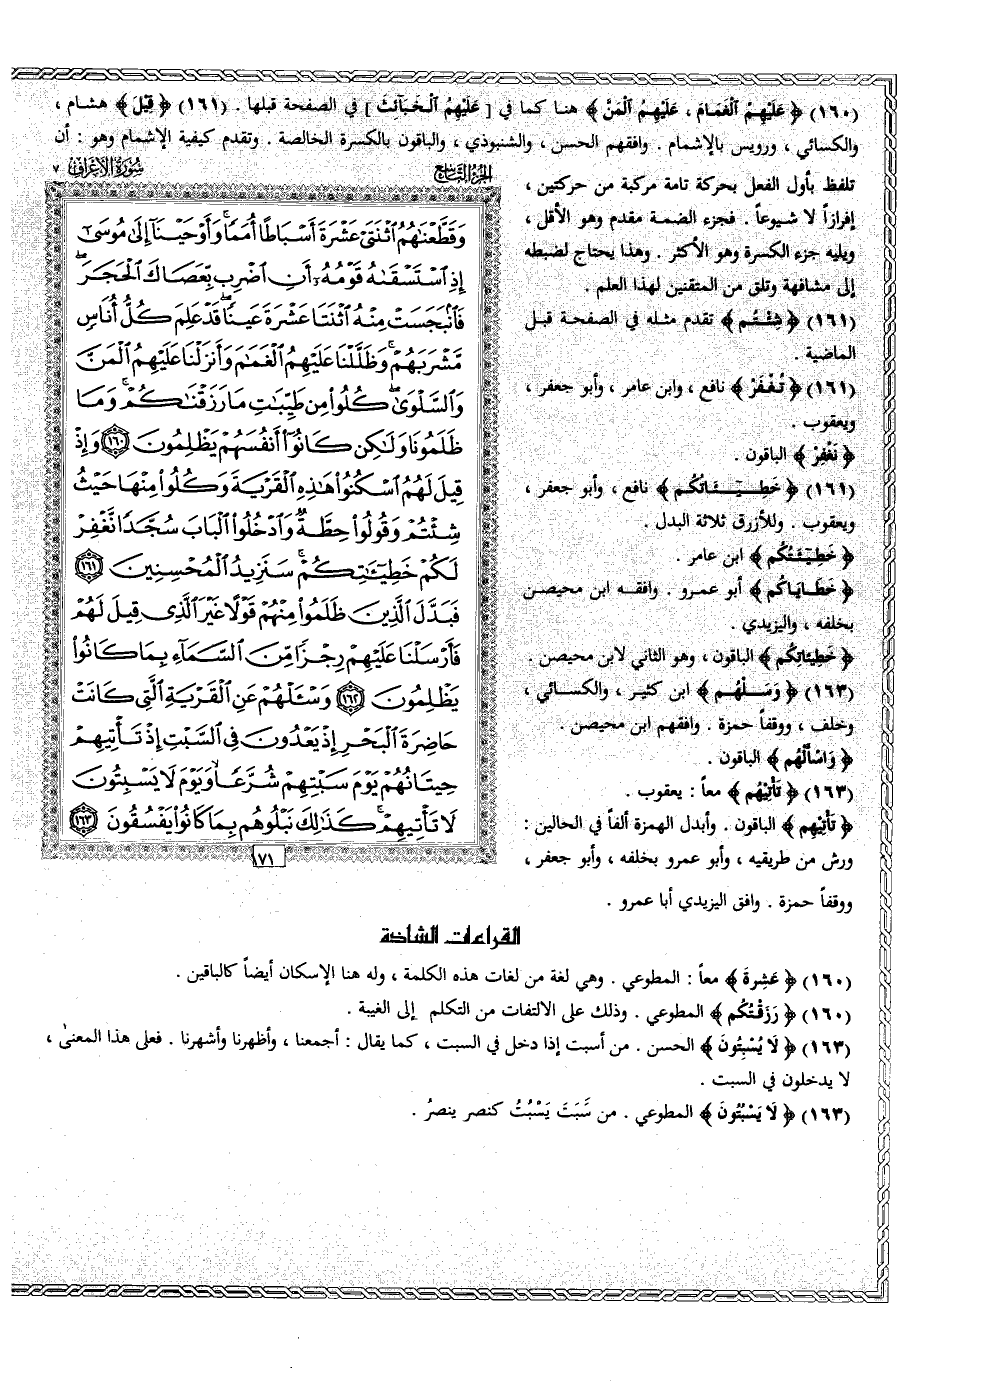 (١٦٠) ﴿ عَلَيْهِمُ ٱلْغَمَامَ ، عَلَيْهِمُ ٱلْمَنَّ ﴾ هنا كما في [ عَلَيْهِمُ ٱلْخَبَآئِثَ ] في الصفحة قبلها . (١٦١) ﴿ قِيلَ ﴾ هشام ،
والكسائي ، ورويس بالإشمام . وافقهم الحسن ، والشنبوذي ، والباقون بالكسرة الخالصة . وتقدم كيفية الإشمام وهو : أن
تلفظ بأول الفعل بحركة تامة مركبة من حركتين ،
إفرازاً لا شيوعاً . فجزء الضمة مقدم وهو الأقل ،
ويليه جزء الكسرة وهو الأكثر . وهذا يحتاج لضبطه
إلى مشافهة وتلق من المتقنين لهذا العلم .
(١٦١) ﴿ شِئْتُم ﴾ تقدم مثله في الصفحة قبل
الماضية .
(١٦١) ﴿ تُغْفَرْ ﴾ نافع ، وابن عامر ، وأبو جعفر ،
ويعقوب .
﴿ نَغْفِرْ ﴾ الباقون .
(١٦١) ﴿ خَطِيٓـَٔاتُكُم ﴾ نافع ، وأبو جعفر ،
ويعقوب . وللأزرق ثلاثة البدل .
﴿ خَطِيٓـَٔتُكُم ﴾ ابن عامر .
﴿ خَطَايَاكُم ﴾ أبو عمرو . وافقه ابن محيصن
بخلفه ، واليزيدي .
﴿ خَطِيٓئَاتِكُم ﴾ الباقون ، وهو الثاني لابن محيصن .
(١٦٣) ﴿ وَسَلْهُم ﴾ ابن كثير ، والكسائي ،
وخلف ، ووقفاً حمزة . وافقهم ابن محيصن .
﴿ وَاسْأَلْهُم ﴾ الباقون .
(١٦٣) ﴿ تَأْتِيهُم ﴾ معاً : يعقوب .
﴿ تَأْتِيهِم ﴾ الباقون . وأبدل الهمزة ألفاً في الحالين :
ورش من طريقيه ، وأبو عمرو بخلفه ، وأبو جعفر ،
ووقفاً حمزة . وافق اليزيدي أبا عمرو .
الجزء التاسع
سورة الأعراف ٧
وَقَطَّعْنَٰهُمُ ٱثْنَتَىْ عَشْرَةَ أَسْبَاطًا أُمَمًا ۚ وَأَوْحَيْنَآ إِلَىٰ مُوسَىٰٓ
إِذِ ٱسْتَسْقَىٰهُ قَوْمُهُۥٓ أَنِ ٱضْرِب بِّعَصَاكَ ٱلْحَجَرَ ۖ
فَٱنۢبَجَسَتْ مِنْهُ ٱثْنَتَا عَشْرَةَ عَيْنًا ۖ قَدْ عَلِمَ كُلُّ أُنَاسٍ
مَّشْرَبَهُمْ ۚ وَظَلَّلْنَا عَلَيْهِمُ ٱلْغَمَٰمَ وَأَنزَلْنَا عَلَيْهِمُ ٱلْمَنَّ
وَٱلسَّلْوَىٰ ۖ كُلُوا۟ مِن طَيِّبَٰتِ مَا رَزَقْنَٰكُمْ ۚ وَمَا
ظَلَمُونَا وَلَٰكِن كَانُوٓا۟ أَنفُسَهُمْ يَظْلِمُونَ ١٦٠ وَإِذْ
قِيلَ لَهُمُ ٱسْكُنُوا۟ هَٰذِهِ ٱلْقَرْيَةَ وَكُلُوا۟ مِنْهَا حَيْثُ
شِئْتُمْ وَقُولُوا۟ حِطَّةٌ وَٱدْخُلُوا۟ ٱلْبَابَ سُجَّدًا نَّغْفِرْ
لَكُمْ خَطِيٓـَٰٔتِكُمْ ۚ سَنَزِيدُ ٱلْمُحْسِنِينَ ١٦١
فَبَدَّلَ ٱلَّذِينَ ظَلَمُوا۟ مِنْهُمْ قَوْلًا غَيْرَ ٱلَّذِى قِيلَ لَهُمْ
فَأَرْسَلْنَا عَلَيْهِمْ رِجْزًا مِّنَ ٱلسَّمَآءِ بِمَا كَانُوا۟
يَظْلِمُونَ ١٦٢ وَسْـَٔلْهُمْ عَنِ ٱلْقَرْيَةِ ٱلَّتِى كَانَتْ
حَاضِرَةَ ٱلْبَحْرِ إِذْ يَعْدُونَ فِى ٱلسَّبْتِ إِذْ تَأْتِيهِمْ
حِيتَانُهُمْ يَوْمَ سَبْتِهِمْ شُرَّعًا وَيَوْمَ لَا يَسْبِتُونَ ۙ
لَا تَأْتِيهِمْ ۚ كَذَٰلِكَ نَبْلُوهُم بِمَا كَانُوا۟ يَفْسُقُونَ ١٦٣
١٧١
القراءات الشاذة
(١٦٠) ﴿ عَشِرَةَ ﴾ معاً : المطوعي . وهي لغة من لغات هذه الكلمة ، وله هنا الإسكان أيضاً كالباقين .
(١٦٠) ﴿ رَزَقْتُكُم ﴾ المطوعي . وذلك على الالتفات من التكلم إلى الغيبة .
(١٦٣) ﴿ لَا يُسْبِتُونَ ﴾ الحسن . من أسبت إذا دخل في السبت ، كما يقال : أجمعنا ، وأظهرنا وأشهرنا . فعلى هذا المعنىٰ ،
لا يدخلون في السبت .
(١٦٣) ﴿ لَا يَسْبُتُونَ ﴾ المطوعي . من سَبَتَ يَسْبُتُ كنصر ينصرُ .